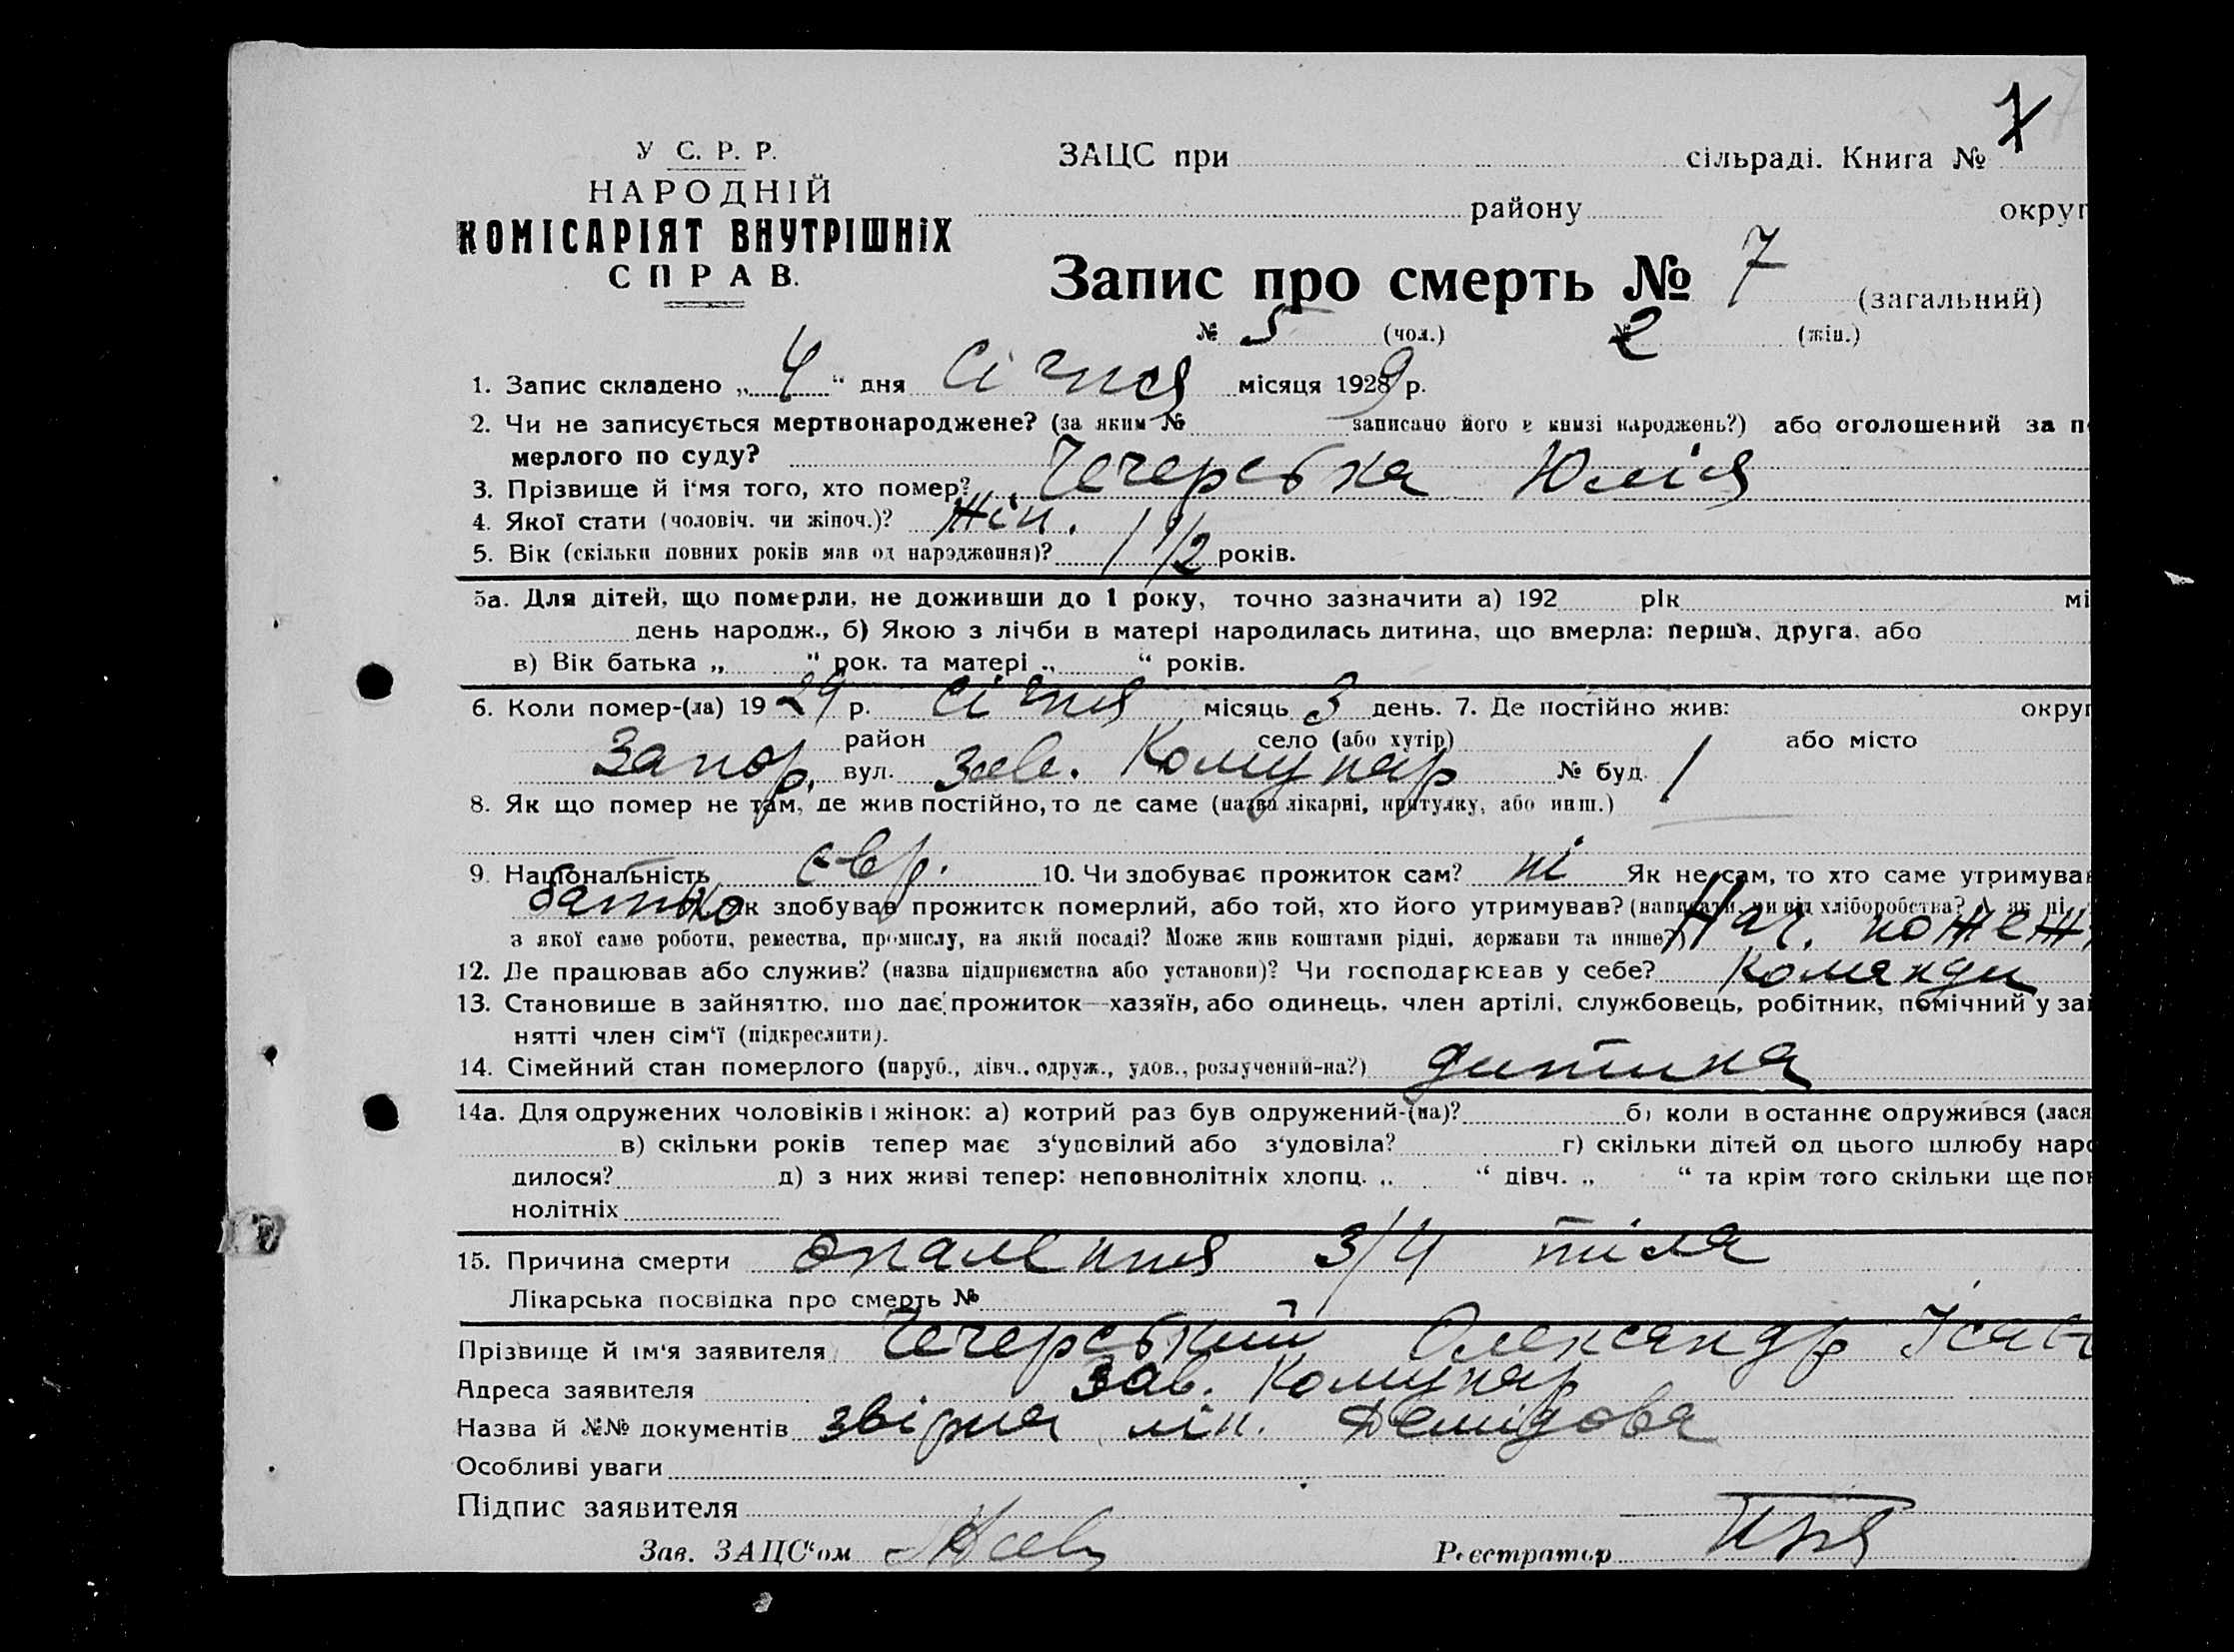 7
У С. Р. Р.
НАРОДНІЙ
КОМІСАРІЯТ ВНУТРІШНІХ
СПРАВ.
ЗАЦС при сільраді. Книга №
району округ
Запис про смерть № 7 (загальний)
№ 5 (чол.) № 2 (жін.)
1. Запис складено „ 4 “ дня Січня місяця 1929 р.
2. Чи не записується мертвонароджене? (за яким № записано його в книзі народжень?) або оголошений за п
мерлого по суду?
3. Прізвище й і'мя того, хто помер? Чечерська Юлія
4. Якої стати (чоловіч. чи жіноч.)? жін.
5. Вік (скільки повних років мав од народження)? 1 1/2 років.
5а. Для дітей, що померли, не доживши до 1 року, точно зазначити а) 192 рік мі
день народж., б) Якою з лічби в матері народилась дитина, що вмерла: перша, друга, або
в) Вік батька „ “ рок. та матері „ “ років.
6. Коли помер-(ла) 1929 р. Січня місяць 3 день. 7. Де постійно жив: округ
район село (або хутір) або місто
Запор. вул. Зав. Комунар № буд. 1
8. Як що помер не там, де жив постійно, то де саме (назва лікарні, притулку, або инш.)
9. Національність євр. 10. Чи здобуває прожиток сам? ні Як не сам, то хто саме утримував
батько Як здобував прожиток померлий, або той, хто його утримував? (написати, чи від хліборобства? А як ні,
з якої саме роботи, ремества, промислу, на якій посаді? Може жив коштами рідні, держави та инше?) Нач. пожеж.
12. Де працював або служив? (назва підприємства або установи)? Чи господарював у себе? команди
13. Становище в зайняттю, що дає прожиток—хазяїн, або одинець, член артілі, службовець, робітник, помічний у зай
нятті член сім'ї (підкреслити).
14. Сімейний стан померлого (паруб., дівч., одруж., удов., розлучений-на?) дитина
14а. Для одружених чоловіків і жінок: а) котрий раз був одружений-(на)? б) коли в останнє одружився (лася
в) скільки років тепер має з'удовілий або з'удовіла? г) скільки дітей од цього шлюбу наро
дилося? д) з них живі тепер: неповнолітніх хлопц. „ “ дівч. „ “ та крім того скільки ще пов
нолітніх
15. Причина смерти опалення 3/4 тіла
Лікарська посвідка про смерть №
Прізвище й ім'я заявителя Чечерський Олександр Ісав
Адреса заявителя Зав. Комунар
Назва й №№ документів звірна лік. Демідова
Особливі уваги
Підпис заявителя
Зав. ЗАЦС'ом Реєстратор